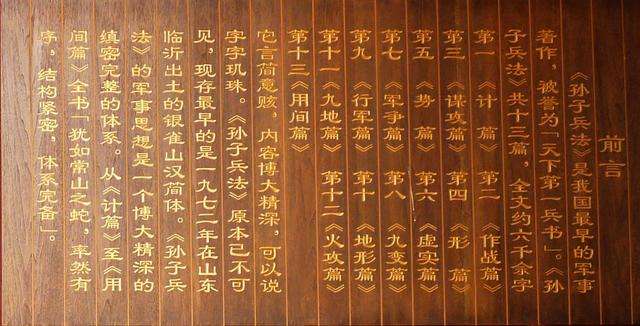 前言
《孙子兵法》是我国最早的军事
著作，被誉为「天下第一兵书」。《孙
子兵法》共十三篇，全文约六千余字
第一《计　篇》第二《作战篇》
第三《谋攻篇》第四《形　篇》
第五《势　篇》第六《虚实篇》
第七《军争篇》第八《九变篇》
第九《行军篇》第十《地形篇》
第十一《九地篇》第十二《火攻篇》
第十三《用间篇》
它言简意赅，内容博大精深，可以说
字字玑珠。《孙子兵法》原本已不可
见，现存最早的是一九七二年在山东
临沂出土的银雀山汉简体。《孙子兵
法》的军事思想是一个博大精深的
缜密完整的体系。从《计篇》至《用
间篇》全书「犹如常山之蛇，率然有
序，结构紧密，体系完备」。